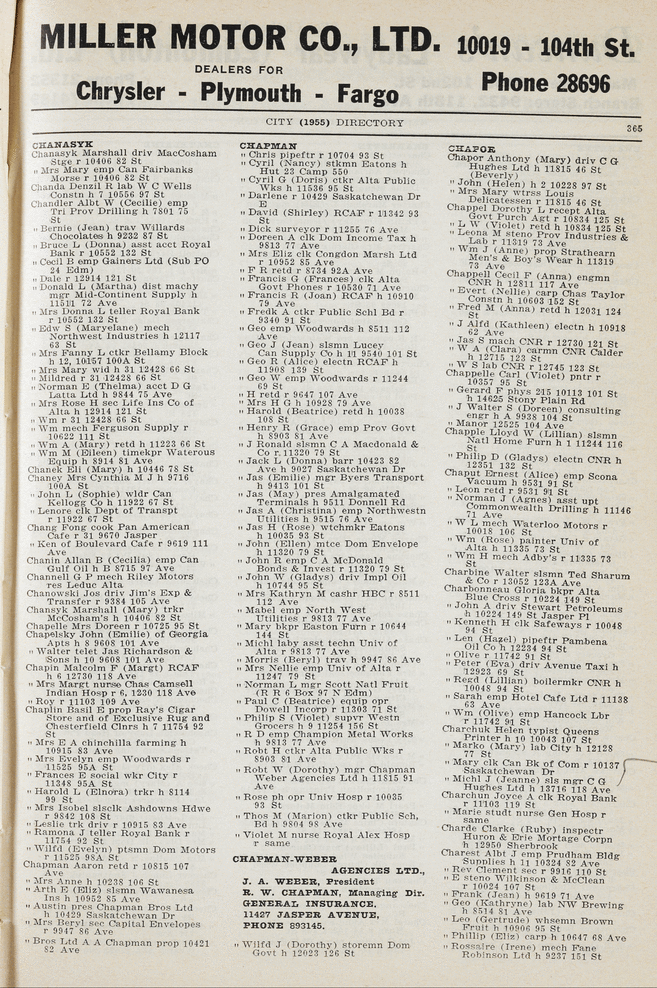 MILLER MOTOR CO., LTD. 10019 - 104th St.
DEALERS FOR
Chrysler - Plymouth - Fargo
Phone 28696
CITY (1955) DIRECTORY
365
CHANASYK
Chanasyk Marshall driv MacCosham
Stge r 10406 82 St
" Mrs Mary emp Can Fairbanks
Morse r 10406 82 St
Chanda Denzil R lab W C Wells
Constn h 7 10556 97 St
Chandler Albt W (Cecilie) emp
Tri Prov Drilling h 7801 75
St
" Bernie (Jean) trav Willards
Chocolates h 9232 87 St
" Bruce L (Donna) asst acct Royal
Bank r 10552 132 St
" Cecil B emp Gainers Ltd (Sub PO
24 Edm)
" Dale r 12914 121 St
" Donald L (Martha) dist machy
mgr Mid-Continent Supply h
11511 72 Ave
" Mrs Donna L teller Royal Bank
r 10552 132 St
" Edw S (Maryelane) mech
Northwest Industries h 12117
63 St
" Mrs Fanny L ctkr Bellamy Block
h 12, 10157 100A St
" Mrs Mary wid h 31 12428 66 St
" Mildred r 31 12428 66 St
" Norman E (Thelma) acct D G
Latta Ltd h 9844 75 Ave
" Mrs Rose H sec Life Ins Co of
Alta h 12914 121 St
" Wm r 31 12428 66 St
" Wm mech Ferguson Supply r
10622 111 St
" Wm A (Mary) retd h 11223 66 St
" Wm M (Eileen) timekpr Waterous
Equip h 8914 81 Ave
Chanek Eli (Mary) h 10446 78 St
Chaney Mrs Cynthia M J h 9716
100A St
" John L (Sophie) wldr Can
Kellogg Co h 11922 67 St
" Lenore clk Dept of Transpt
r 11922 67 St
Chang Fong cook Pan American
Cafe r 31 9670 Jasper
" Ken of Boulevard Cafe r 9619 111
Ave
Chanin Allan B (Cecilia) emp Can
Gulf Oil h B 8715 97 Ave
Channell G P mech Riley Motors
res Leduc Alta
Chanowski Jos driv Jim's Exp &
Transfer r 9384 105 Ave
Chansyk Marshall (Mary) trkr
McCosham's h 10406 82 St
Chapelle Mrs Doreen r 10725 95 St
Chapelsky John (Emilie) of Georgia
Apts h 8 9608 101 Ave
" Walter telet Jas Richardson &
Sons h 10 9608 101 Ave
Chapin Malcolm F (Margt) RCAF
h 6 12730 118 Ave
" Mrs Margt nurse Chas Camsell
Indian Hosp r 6, 1230 118 Ave
" Roy r 11103 109 Ave
Chaplin Basil E prop Ray's Cigar
Store and of Exclusive Rug and
Chesterfield Clnrs h 7 11754 92
St
" Mrs E A chinchilla farming h
10915 83 Ave
" Mrs Evelyn emp Woodwards r
11525 95A St
" Frances E social wkr City r
11348 95A St
" Harold L (Elnora) trkr h 8114
99 St
" Mrs Isobel slsclk Ashdowns Hdwe
r 9842 108 St
" Leslie trk driv r 10915 83 Ave
" Ramona J teller Royal Bank r
11754 92 St
" Wilfd (Evelyn) ptsmn Dom Motors
r 11525 98A St
Chapman Aaron retd r 10815 107
Ave
" Mrs Anne h 10238 106 St
" Arth E (Eliz) slsmn Wawanesa
Ins h 10952 85 Ave
" Austin pres Chapman Bros Ltd
h 10429 Saskatchewan Dr
" Mrs Beryl sec Capital Envelopes
r 9947 86 Ave
" Bros Ltd A A Chapman prop 10421
82 Ave
CHAPMAN
" Chris pipeftr r 10704 93 St
" Cyril (Nancy) stkmn Eatons h
Hut 23 Camp 550
" Cyril G (Doris) ctkr Alta Public
Wks h 11536 95 St
" Darlene r 10429 Saskatchewan Dr
E
" David (Shirley) RCAF r 11342 93
St
" Dick surveyor r 11255 76 Ave
" Doreen A clk Dom Income Tax h
9813 77 Ave
" Mrs Eliz clk Congdon Marsh Ltd
r 10952 85 Ave
" F R retd r 8734 92A Ave
" Francis G (Frances) clk Alta
Govt Phones r 10530 71 Ave
" Francis R (Joan) RCAF h 10910
79 Ave
" Fredk A ctkr Public Schl Bd r
9340 91 St
" Geo emp Woodwards h 8511 112
Ave
" Geo J (Jean) slsmn Lucey
Can Supply Co h 11 9540 101 St
" Geo R (Alice) electn RCAF h
11908 139 St
" Geo W emp Woodwards r 11244
69 St
" H retd r 9647 107 Ave
" Mrs H G h 10928 79 Ave
" Harold (Beatrice) retd h 10038
108 St
" Henry R (Grace) emp Prov Govt
h 8903 81 Ave
" J Ronald slsmn C A Macdonald &
Co r.11320 79 St
" Jack L (Donna) barr 10423 82
Ave h 9027 Saskatchewan Dr
" Jas (Emilie) mgr Byers Transport
h 9413 101 St
" Jas (May) pres Amalgamated
Terminals h 9511 Donnell Rd
" Jas A (Christina) emp Northwestn
Utilities h 9515 76 Ave
" Jas H (Rose) wtchmkr Eatons
h 10035 93 St
" John (Ellen) mtce Dom Envelope
h 11320 79 St
" John R emp C A McDonald
Bonds & Invest r 11320 79 St
" John W (Gladys) driv Impl Oil
h 10744 95 St
" Mrs Kathryn M cashr HBC r 8511
112 Ave
" Mabel emp North West
Utilities r 9813 77 Ave
" Mary bkpr Easton Furn r 10644
144 St
" Michl laby asst techn Univ of
Alta r 9813 77 Ave
" Morris (Beryl) trav h 9947 86 Ave
" Mrs Nellie emp Univ of Alta r
11247 79 St
" Norman L mgr Scott Natl Fruit
(R R 6 Box 97 N Edm)
" Paul C (Beatrice) equip opr
Dowell Incorp r 11303 71 St
" Philip S (Violet) supvr Westn
Grocers h 9 11254 156 St
" R D emp Champion Metal Works
h 9813 77 Ave
" Robt H ctkr Alta Public Wks r
8903 81 Ave
" Robt W (Dorothy) mgr Chapman
Weber Agencies Ltd h 11815 91
Ave
" Rose ph opr Univ Hosp r 10035
93 St
" Thos M (Marion) ctkr Public Sch,
Bd h 9804 98 Ave
" Violet M nurse Royal Alex Hosp
r same
CHAPMAN-WEBER
AGENCIES LTD.,
J. A. WEBER, President
R. W. CHAPMAN, Managing Dir.
GENERAL INSURANCE,
11427 JASPER AVENUE,
PHONE 893145.
" Wilfd J (Dorothy) storemn Dom
Govt h 12023 126 St
CHAPOR
Chapor Anthony (Mary) driv C G
Hughes Ltd h 11815 46 St
(Beverly)
" John (Helen) h 2 10228 97 St
" Mrs Mary wtrss Louis
Delicatessen r 11815 46 St
Chappel Dorothy L recept Alta
Govt Purch Agt r 10834 125 St
" L W (Violet) retd h 10834 125 St
" Leona M steno Prov Industries &
Lab r 11319 73 Ave
" Wm J (Anne) prop Strathearn
Men's & Boy's Wear h 11319
73 Ave
Chappell Cecil F (Anna) engmn
CNR h 12811 117 Ave
" Evert (Nellie) carp Chas Taylor
Constn h 10603 152 St
" Fred M (Anna) retd h 12031 124
St
" J Alfd (Kathleen) electn h 10918
62 Ave
" Jas S mach CNR r 12730 121 St
" W A (Clara) carmn CNR Calder
h 12715 123 St
" W S lab CNR r 12745 123 St
Chappelle Carl (Violet) pntr r
10357 95 St
" Gerard F phys 215 10113 101 St
h 14625 Stony Plain Rd
" J Walter S (Doreen) consulting
engr h A 9938 104 St
" Manor 12525 104 Ave
Chapple Lloyd W (Lillian) slsmn
Natl Home Furn h 1 11244 116
St
" Philip D (Gladys) electn CNR h
12351 132 St
Chaput Ernest (Alice) emp Scona
Vacuum h 9531 91 St
" Leon retd r 9531 91 St
" Norman J (Agnes) asst upt
Commonwealth Drilling h 11146
71 Ave
" W L mech Waterloo Motors r
10018 106 St
" Wm (Rose) painter Univ of
Alta h 11335 73 St
" Wm H mech Adby's r 11335 73
St
Charbine Walter slsmn Ted Sharum
& Co r 13052 123A Ave
Charbonneau Gloria bkpr Alta
Blue Cross r 10224 149 St
" John A driv Stewart Petroleums
h 10224 149 St Jasper Pl
" Kenneth H clk Safeways r 10048
94 St
" Len (Hazel) pipeftr Pambena
Oil Co h 12234 94 St
" Olive r 11742 91 St
" Peter (Eva) driv Avenue Taxi h
12923 69 St
" Regd (Lillian) boilermkr CNR h
10048 94 St
" Sarah emp Hotel Cafe Ltd r 11138
63 Ave
" Wm (Olive) emp Hancock Lbr
r 11742 91 St
Charchuk Helen typist Queens
Printer h 10 10043 107 St
" Marko (Mary) lab City h 12128
77 St
" Mary clk Can Bk of Com r 10137
Saskatchewan Dr
" Michl J (Jeanne) sls mgr C G
Hughes Ltd h 13716 118 Ave
Charchun Joyce A clk Royal Bank
r 11103 119 St
" Marie studt nurse Gen Hosp r
same
Charde Clarke (Ruby) inspectr
Huron & Erie Mortage Corpn
h 12950 Sherbrook
Charest Albt J emp Prudham Bldg
Supplies h 11 10324 82 Ave
" Rev Clement sec r 9916 110 St
" E steno Wilkinson & McClean
r 10024 107 St
" Frank (Jean) h 9619 71 Ave
" Geo (Kathryne) lab NW Brewing
h 8514 81 Ave
" Leo (Gertrude) whsemn Brown
Fruit h 10906 95 St
" Phillip (Eliz) carp h 10647 68 Ave
" Rossaire (Irene) mech Fane
Robinson Ltd h 9237 151 St